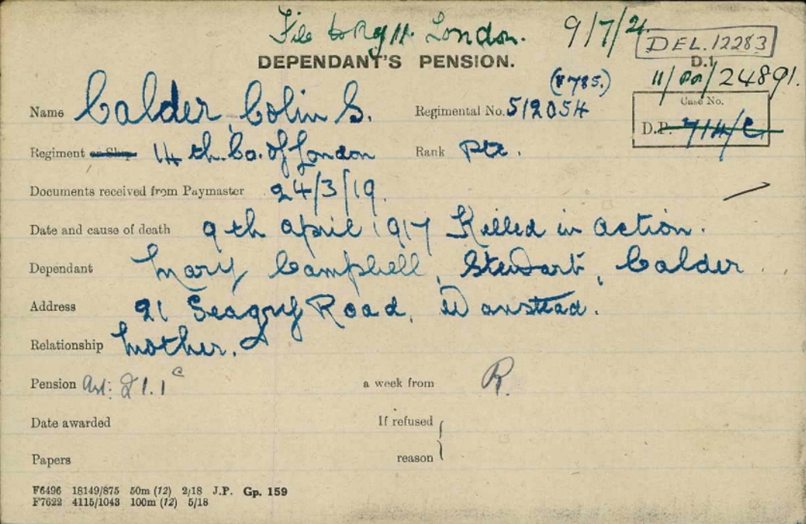 File to Reg 11. London. 9/7/21 DEL.12283
DEPENDANT'S PENSION. D.1
(F785.) 11/ /24891.
Name Calder, Colin S. Regimental No. 512054 Case No.
D.P. 714/C
Regiment or Ship 14th. Co. of London Rank Pte.
Documents received from Paymaster 24/3/19.
Date and cause of death 9th April 1917 Killed in action.
Dependant Mary Campbell, Stewart, Calder.
Address 21 Seagry Road, Wanstead.
Relationship Mother.
Pension Art: 21.1 c a week from R.
Date awarded If refused
Papers reason
F6496 18149/875 50m (12) 2/18 J.P. Gp. 159
F7622 4115/1043 100m (12) 5/18